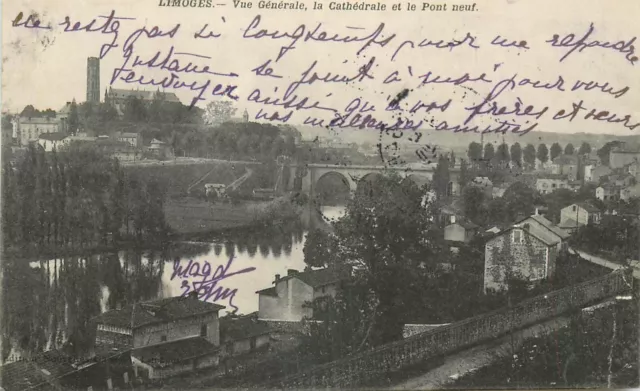 LIMOGES. — Vue Générale, la Cathédrale et le Pont neuf.
ne reste pas si longtemps pour me répondre
Gustave se joint à moi pour vous
envoyer aussi qu'à vos frères et sœurs
nos meilleures amitiés
Magd